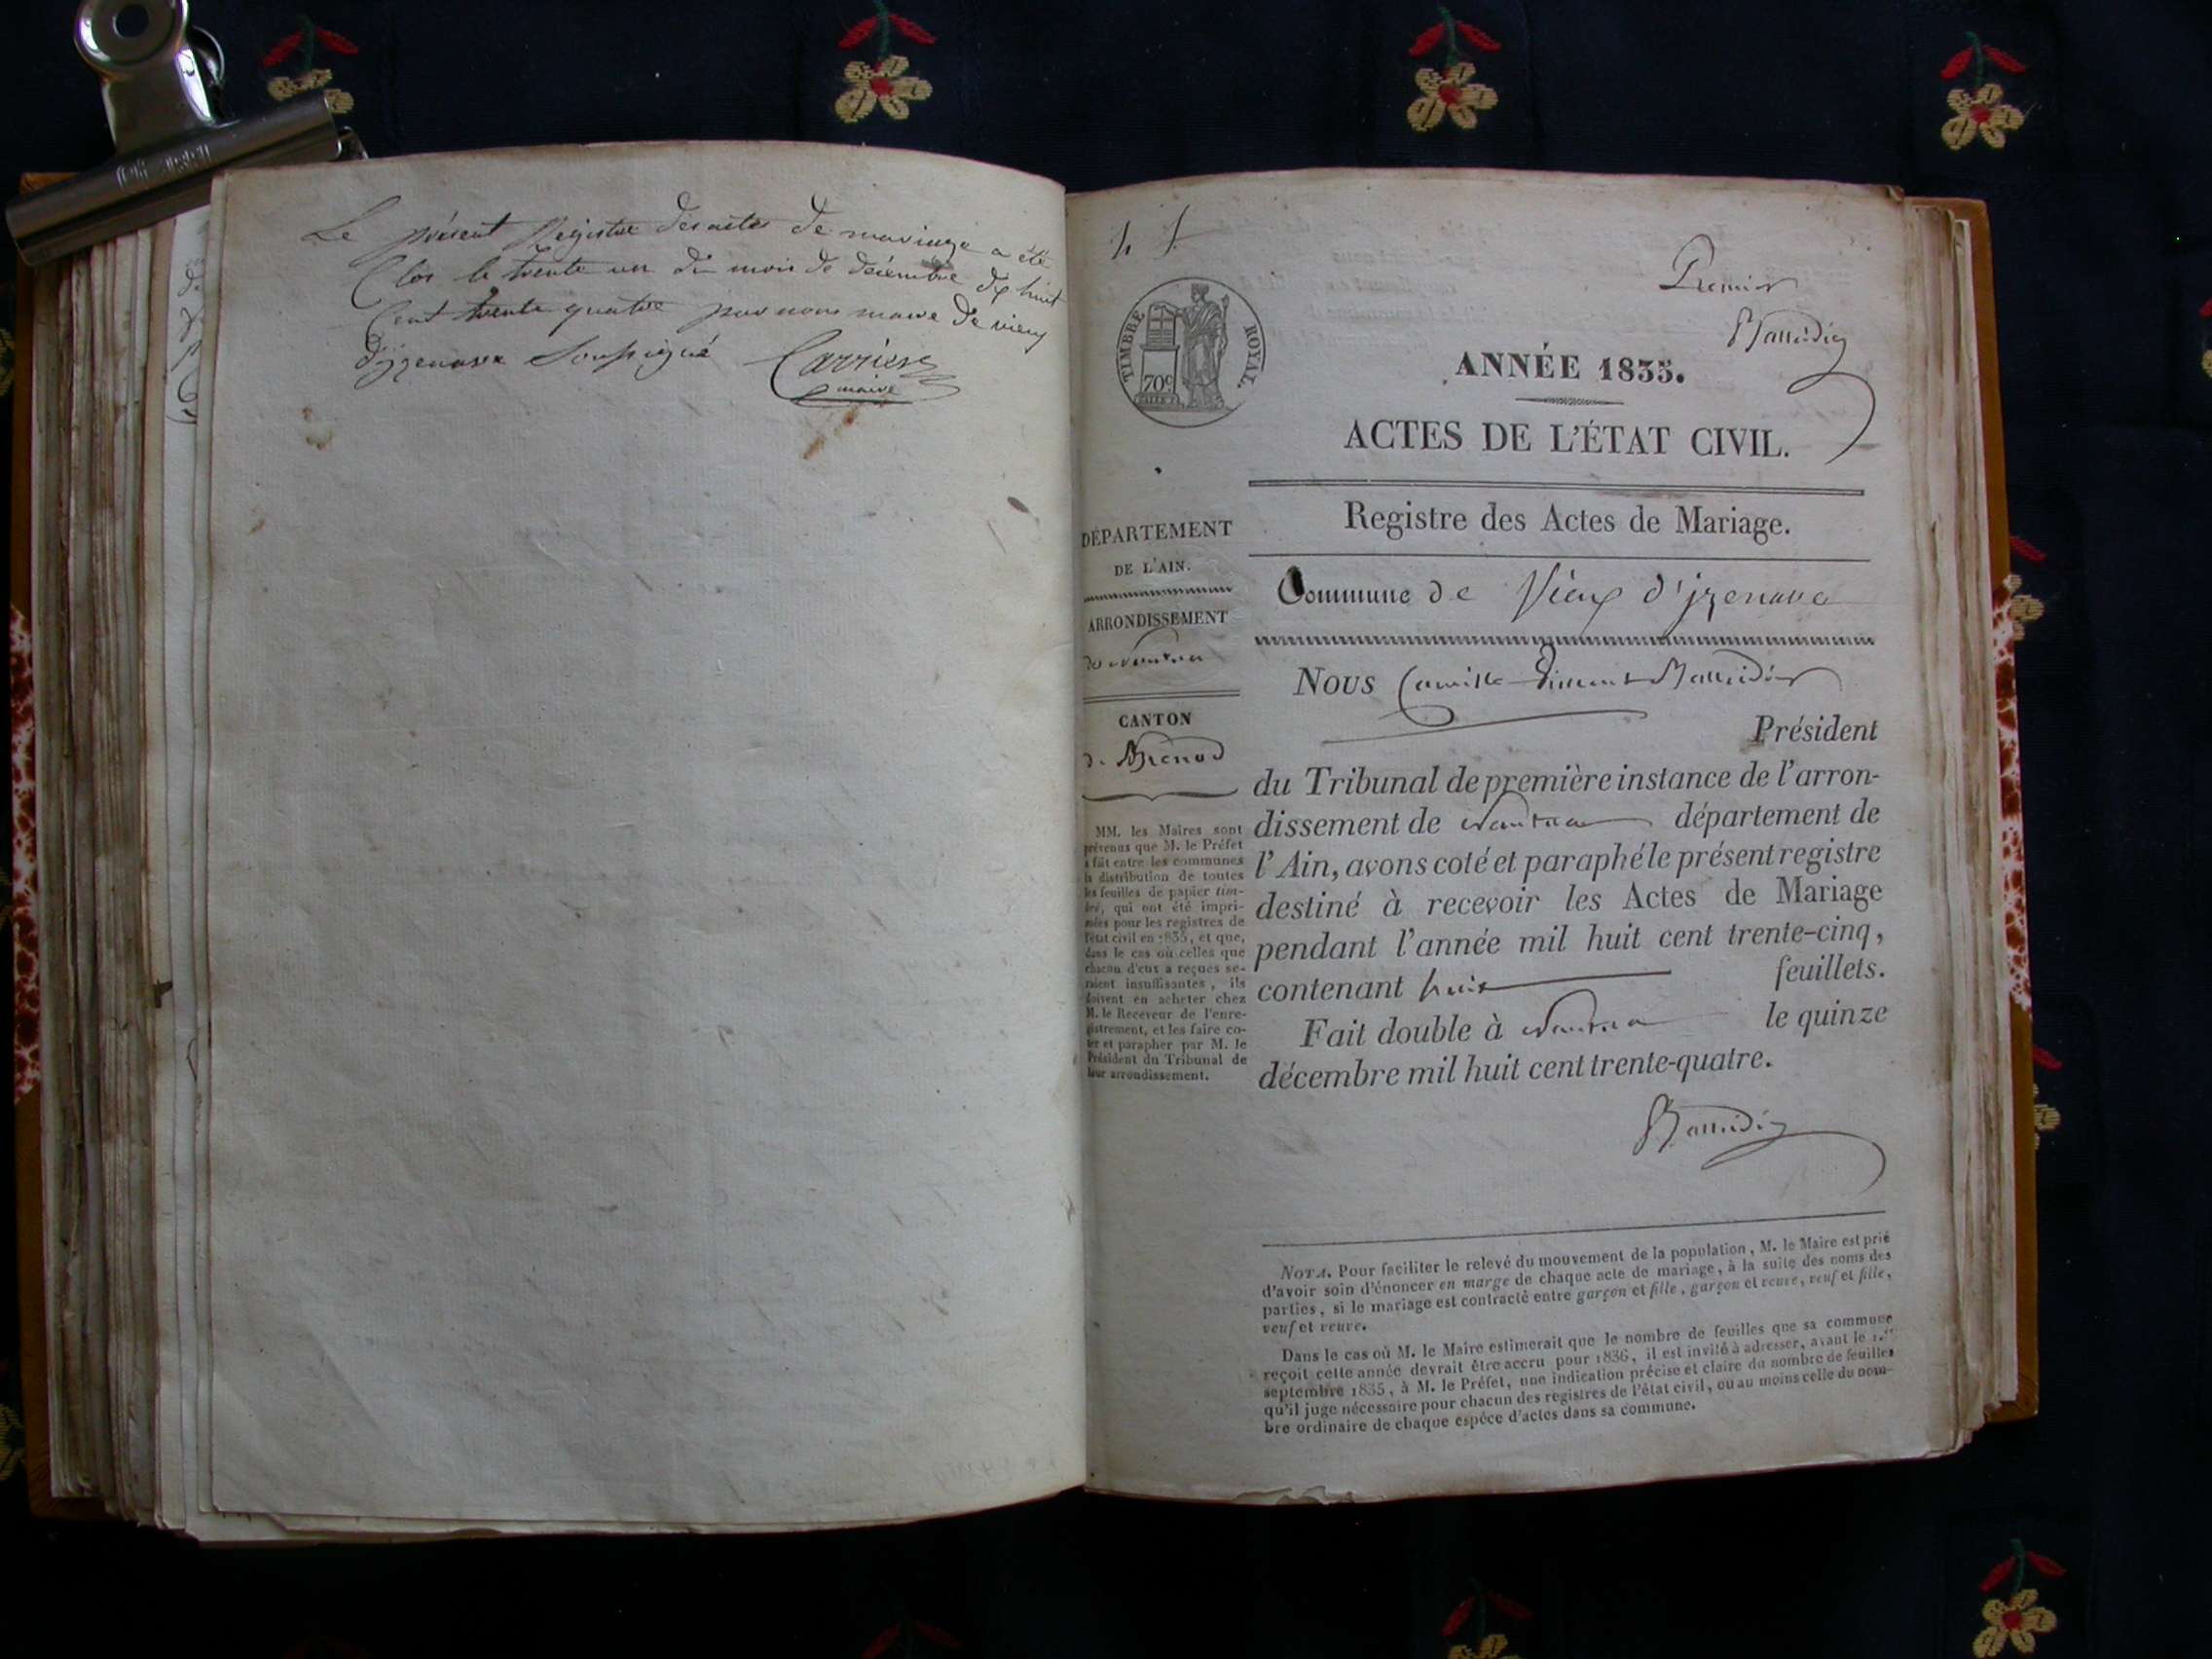 Le présent Registre des actes de mariage a été
Clos le trente un du mois de décembre dix huit
Cent trente quatre par nous maire de vieux
d'jzenave Soussigné Carrier
maire
Premier
TIMBRE ROYAL.
70c
ANNÉE 1835.
ACTES DE L'ÉTAT CIVIL.
Registre des Actes de Mariage.
Commune de Vieux d'jzenave
DÉPARTEMENT
DE L'AIN.
ARRONDISSEMENT
de Nantua
CANTON
de Brenod
MM. les Maires sont
prévenus que M. le Préfet
a fait entre les communes
la distribution de toutes
les feuilles de papier tim-
bré, qui ont été impri-
mées pour les registres de
l'état civil en 1835, et que,
dans le cas où celles que
chacun d'eux a reçues se-
raient insuffisantes, ils
doivent en acheter chez
M. le Receveur de l'enre-
gistrement, et les faire co-
ter et parapher par M. le
Président du Tribunal de
leur arrondissement.
Nous Camille Vincent
Président
du Tribunal de première instance de l'arron-
dissement de Nantua département de
l'Ain, avons coté et paraphé le présent registre
destiné à recevoir les Actes de Mariage
pendant l'année mil huit cent trente-cinq,
contenant huit feuillets.
Fait double à Nantua le quinze
décembre mil huit cent trente-quatre.
NOTA. Pour faciliter le relevé du mouvement de la population, M. le Maire est prié
d'avoir soin d'énoncer en marge de chaque acte de mariage, à la suite des noms des
parties, si le mariage est contracté entre garçon et fille, garçon et veuve, veuf et fille,
veuf et veuve.
Dans le cas où M. le Maire estimerait que le nombre de feuilles que sa commune
reçoit cette année devrait être accru pour 1836, il est invité à adresser, avant le 1.er
septembre 1835, à M. le Préfet, une indication précise et claire du nombre de feuilles
qu'il juge nécessaire pour chacun des registres de l'état civil, ou au moins celle du nom-
bre ordinaire de chaque espéce d'actes dans sa commune.